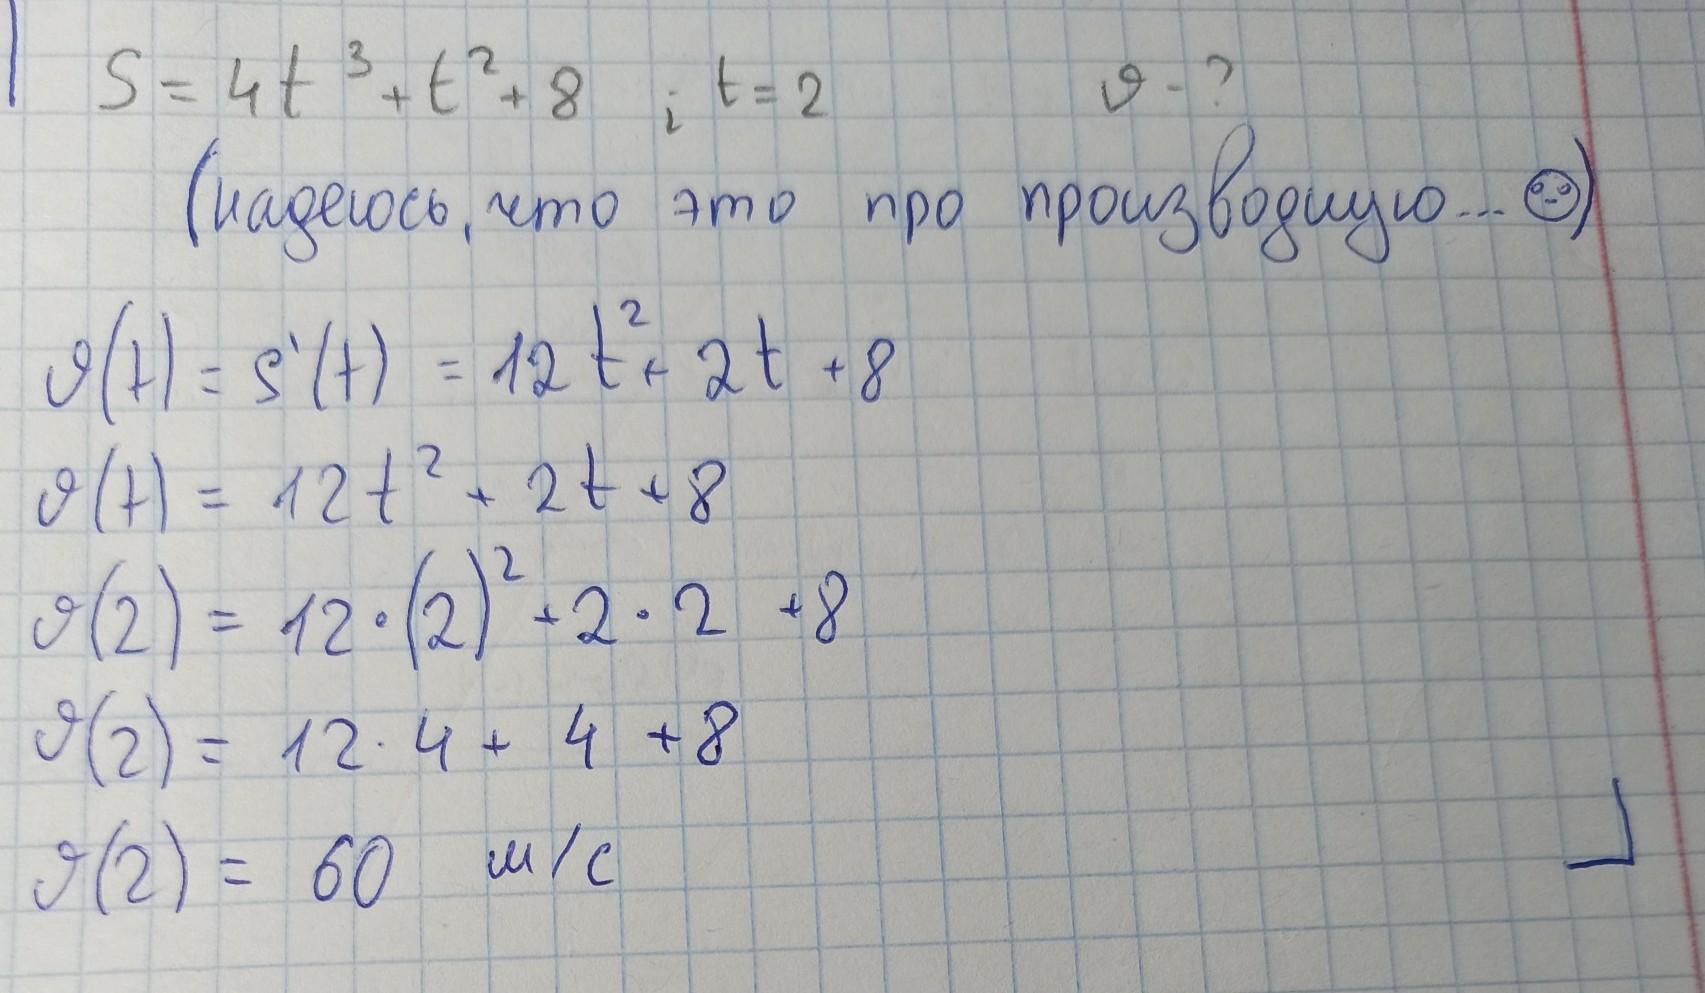 S = 4t³ + t² + 8 ; t = 2 ϑ - ?
(надеюсь, что это про производную... )
ϑ(t) = S'(t) = 12t² + 2t + 8
ϑ(t) = 12t² + 2t + 8
ϑ(2) = 12·(2)² + 2·2 + 8
ϑ(2) = 12·4 + 4 + 8
ϑ(2) = 60 м/с